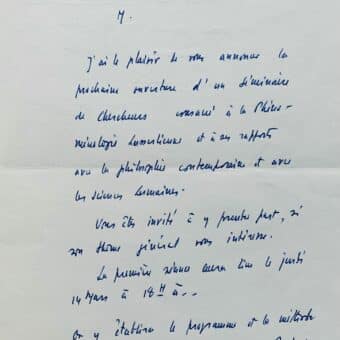 M.
J'ai le plaisir de vous annoncer la
prochaine ouverture d'un séminaire
de chercheurs consacré à la Phéno-
ménologie husserlienne et à ses rapports
avec la philosophie contemporaine et avec
les sciences humaines.
Vous êtes invité à y prendre part, si
son thème général vous intéresse.
La première séance aura lieu le jeudi
14 Mars à 18H à...
On y établira le programme et la méthode